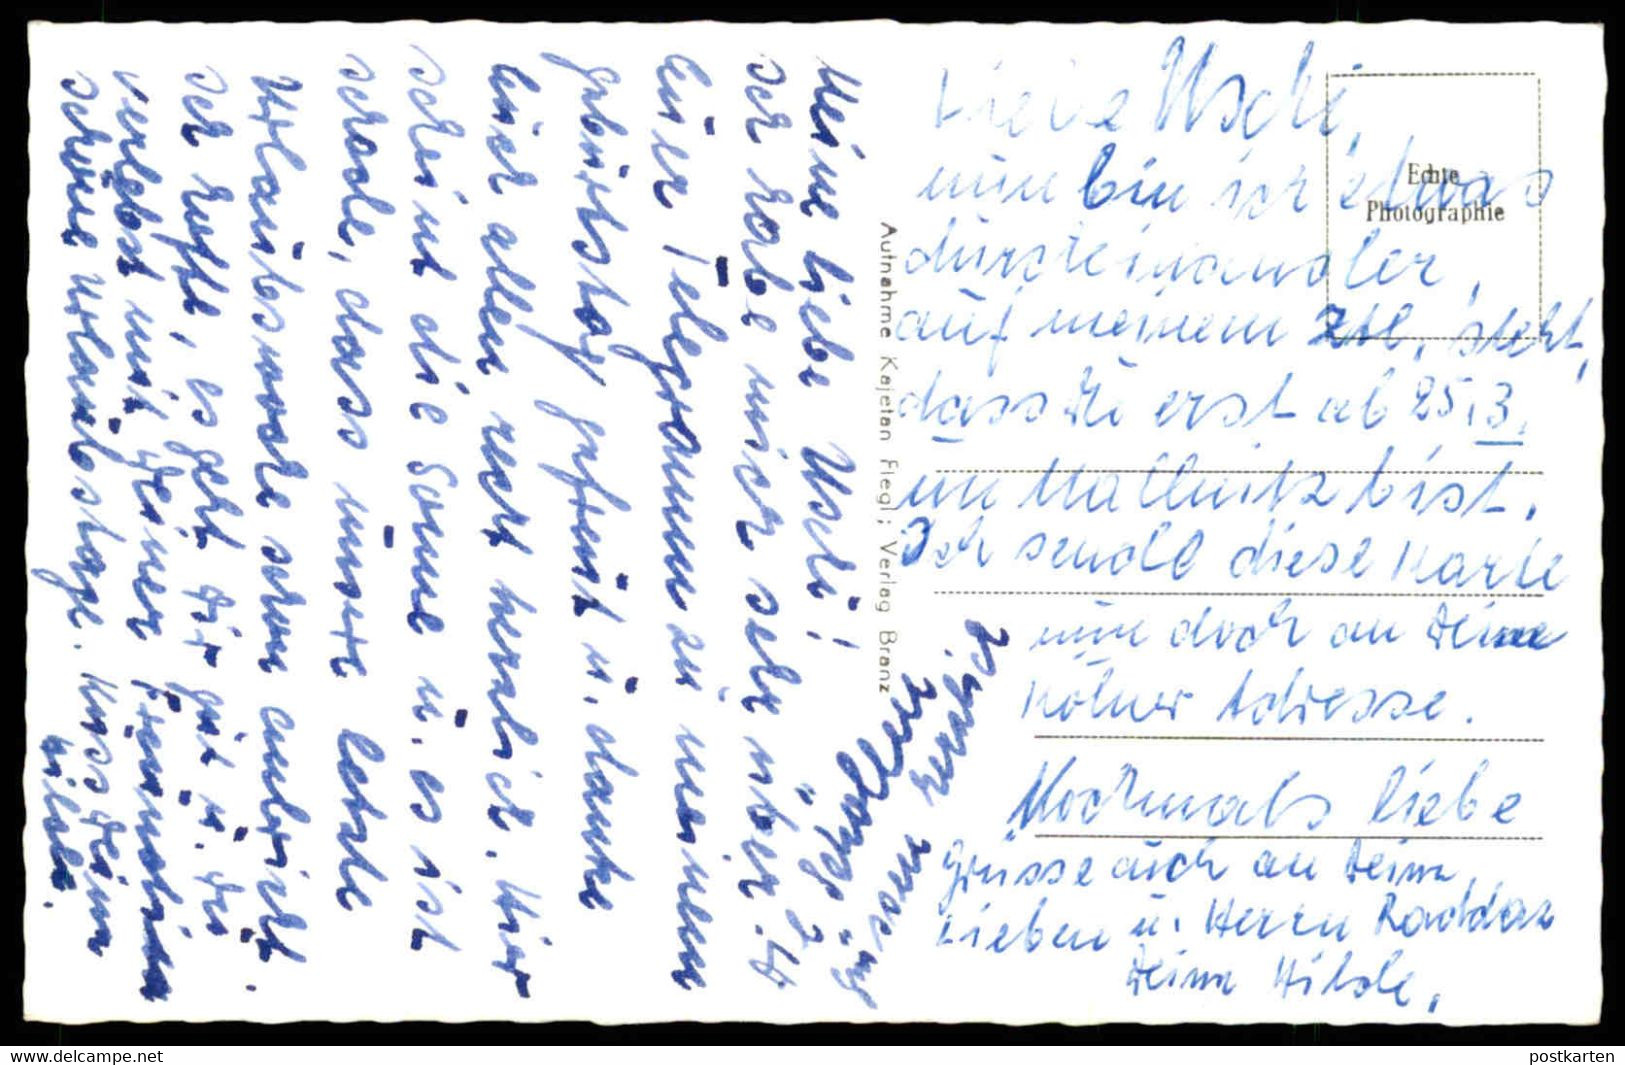 Meine liebe Uschi!
Ich habe mich sehr über
Euer Telegramm zu meinem
Geburtstag gefreut u. danke
Euch allen recht herzlich. Hier
scheint die Sonne u. es ist
schade, dass unsere letzte
Urlaubswoche schon anbricht.
Ich hoffe, es geht Dir gut u. Du
verlebst mit Deiner Freundin
schöne Urlaubstage. Kuss Deine
Hilde.
herzlich
Aufnahme Kajetan Fiegl; Verlag Branz
Echte
Photographie
Liebe Uschi,
nun bin ich etwas
durcheinander,
auf meinem Ztl. steht,
dass Du erst ab 25.3.
in Mallnitz bist.
Ich sende diese Karte
nun doch an Deine
Kölner Adresse.
Nochmals liebe
Grüsse auch an Deine
Lieben u. Herrn Raddaz
Deine Hilde.
www.delcampe.net
postkarten